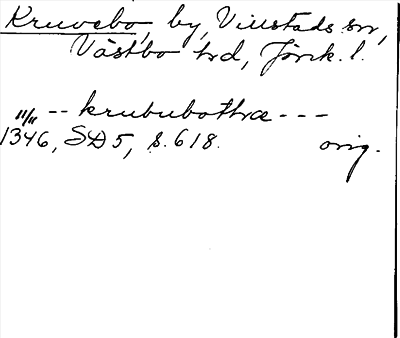 Kruvebo, by, Villstads sn,
Västbo hd, Jönk. l.
11/11 -- krububothræ ---
1346, SD 5, s. 618. orig.